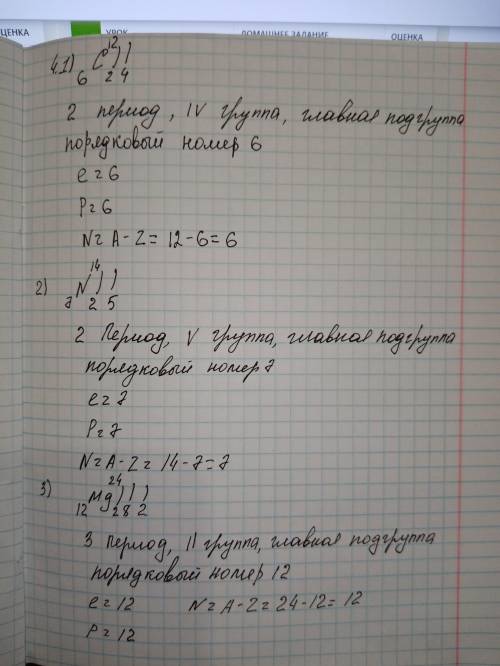 ЦЕНКА УРОК ДОМАШНЕЕ ЗАДАНИЕ ОЦЕНКА
4.1) 6 C 12 ) )
2 4
2 период, IV группа, главная подгруппа
порядковый номер 6
e = 6
P = 6
N = A - Z = 12 - 6 = 6
2) 7 N 14 ) )
2 5
2 Период, V группа, главная подгруппа
порядковый номер 7
e = 7
P = 7
N = A - Z = 14 - 7 = 7
3) 12 Mg 24 ) ) )
2 8 2
3 период, II группа, главная подгруппа
порядковый номер 12
e = 12 N = A - Z = 24 - 12 = 12
P = 12